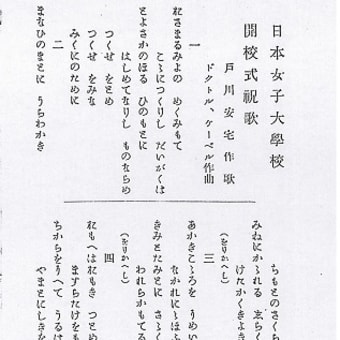 日本女子大學校
開校式祝歌
戸川安宅作歌
ドクトル、ケーベル作曲
一
おさまるみよの めぐみもて
こゝにつくりし だいがくは
とよさかのぼる ひのもとに
はじめてなりし ものならめ
つくせ をとめ
つくせ をみな
みくにのために
二
まなびのまどに うちわかき
ちもとのさくら
みねにかゝれる しらく
けたかくきよき
(をりかへし)
三
あかきこゝろを うめい
ながれにゝほふ
きみとたみとに さゝく
われらがもてる
(をりかへし)
四
おもへばおもき つとめ
ますらたけをも
ちからをそへて うるは
やまとにしきを